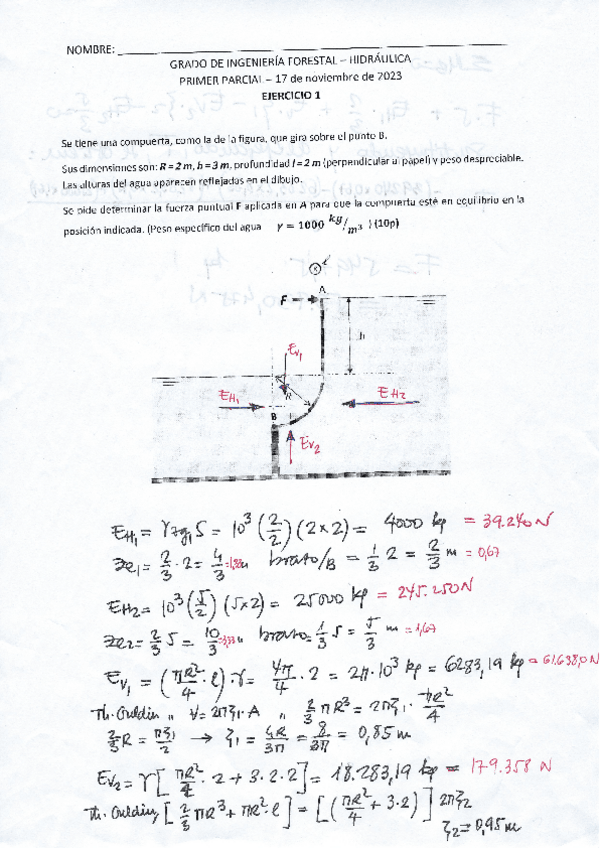 NOMBRE:
GRADO DE INGENIERÍA FORESTAL – HIDRÁULICA
PRIMER PARCIAL – 17 de noviembre de 2023
EJERCICIO 1
Se tiene una compuerta, como la de la figura, que gira sobre el punto B.
Sus dimensiones son: R = 2 m, h = 3 m, profundidad l = 2 m (perpendicular al papel) y peso despreciable.
Las alturas del agua aparecen reflejadas en el dibujo.
Se pide determinar la fuerza puntual F aplicada en A para que la compuerta esté en equilibrio en la
posición indicada. (Peso específico del agua γ = 1000 kg/m³ ) (10p)
A
F
h
EV1
R
EH1
EH2
B
EV2
EH1 = γ zg1 S = 10³ (2/2) (2×2) = 4000 kp = 39.240 N
zc1 = 2/3 · 2 = 4/3 = 1,33m brazo/B = 1/3 2 = 2/3 m = 0,67
EH2 = 10³ (5/2) (5×2) = 25000 kp = 245.250N
zc2 = 2/3 5 = 10/3 = 3,33m brazo = 1/3 5 = 5/3 m = 1,67
EV1 = (πR²/4 · l) γ = 4π/4 · 2 = 2π·10³ kp = 6283,19 kp = 61.638,0 N
Th. Guldin " V = 2πξ1·A " 2/3 πR³ = 2πξ1 · πR²/4
2/3 R = πξ1/2 → ξ1 = 4R/3π = 8/3π = 0,85 m
EV2 = γ [πR²/4 · 2 + 3·2·2] = 18.283,19 kp = 179.358 N
Th. Gulding [2/3 πR³ + πR²·l] = [(πR²/4 + 3·2)] 2πξ2
ξ2 = 0,95 m